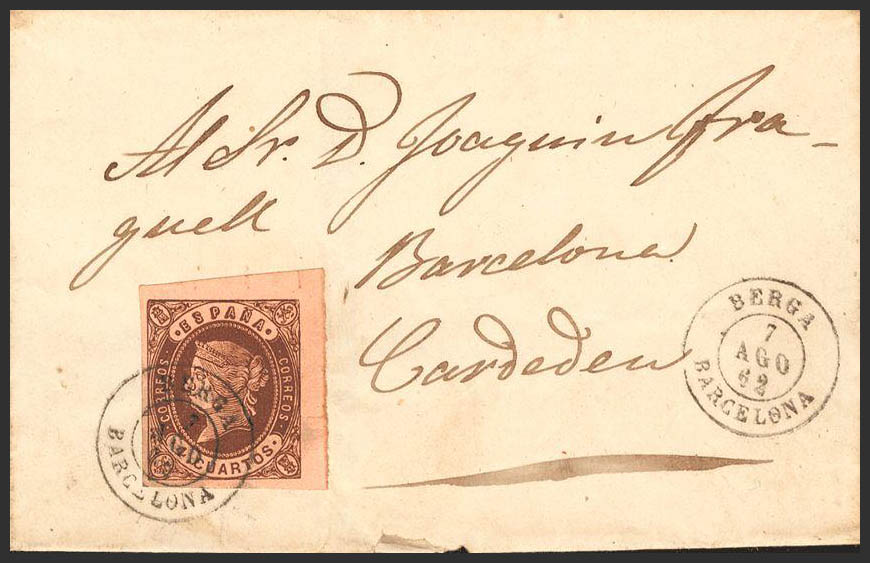 Al Sr. D. Joaquin Fra-
guell
Barcelona
Cardedeu
ESPAÑA
CORREOS
CORREOS
CUARTOS
BERGA
7
AGO
BARCELONA
BERGA
7
AGO
62
BARCELONA